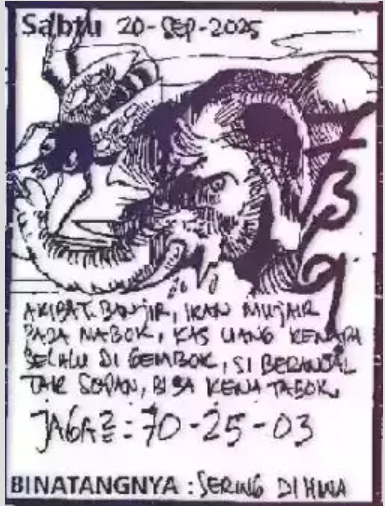 Sabtu 20-SEP-2025
AKIBAT BANJIR, IKAN MUJAIR
PADA NABOK, KAS UANG KENAPA
SELALU DI GEMBOK, SI BERANDAL
TAK SOPAN, BISA KENA TABOK.
JAGA2: 70-25-03
BINATANGNYA : SERING DI HINA